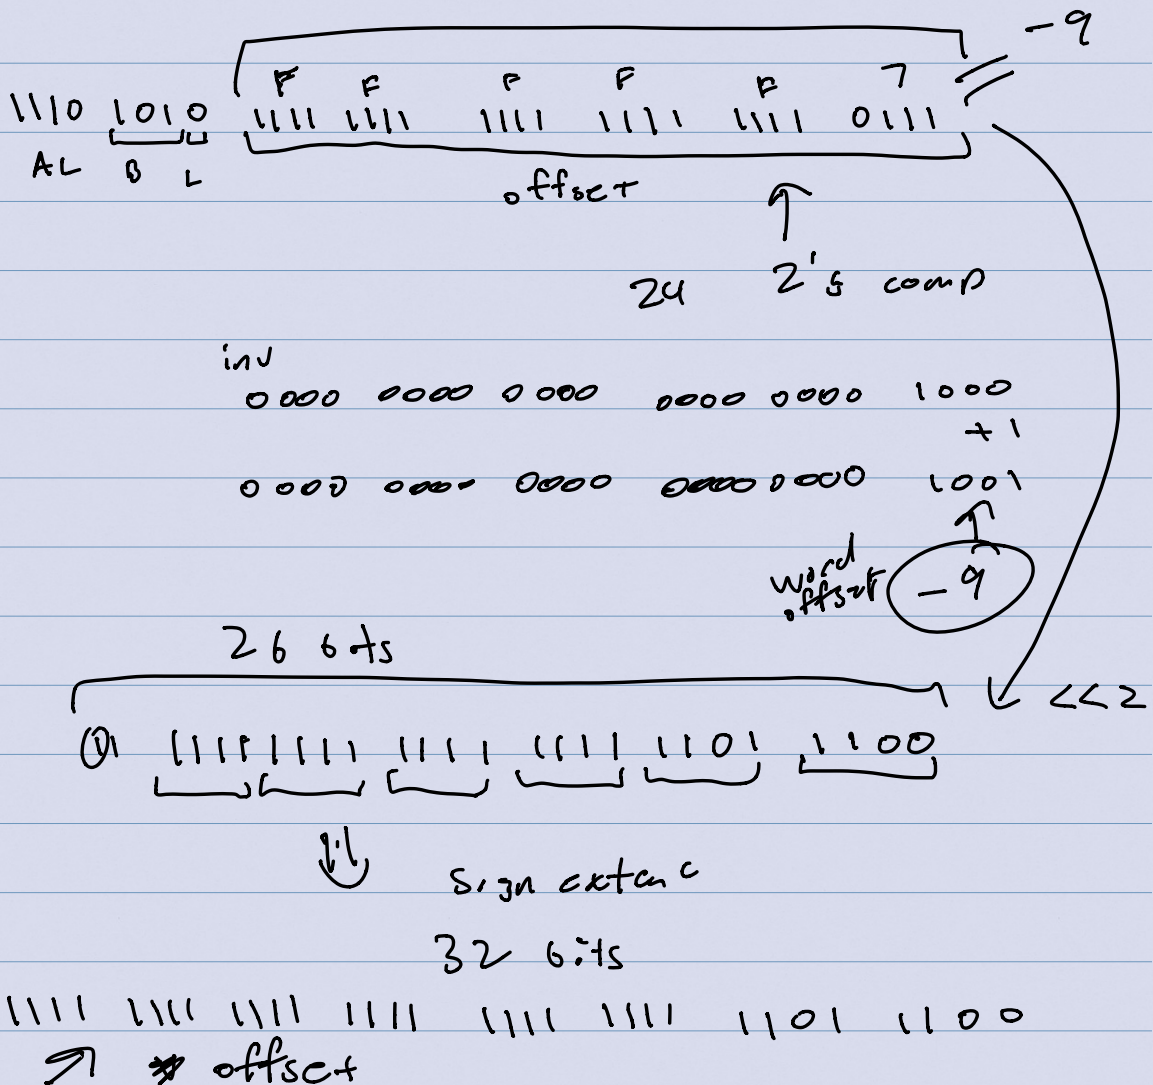 -9
F F F F F 7
1110 1010 1111 1111 1111 1111 1111 0111
AL B L
offset
24 2's comp
inv
0000 0000 0000 0000 0000 1000
+1
0000 0000 0000 0000 0000 1001
word
offset -9
26 bits
<<2
11 1111 1111 1111 1111 1101 1100
sign extend
32 bits
1111 1111 1111 1111 1111 1111 1101 1100
offset